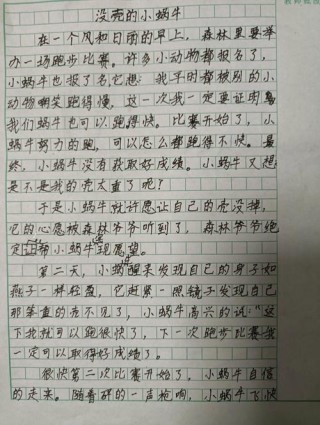 没壳的小蜗牛
在一个风和日丽的早上，森林里要举
办一场跑步比赛。许多小动物都报名了，
小蜗牛也报了名，它想：我平时都被别的小
动物嘲笑跑得慢，这一次我一定要证明
我们蜗牛也可以跑得快。比赛开始了，小
蜗牛努力的跑，可以怎么都跑得不快。最
终，小蜗牛没有获取好成绩。小蜗牛又想
是不是我的壳太重了呢？
于是小蜗牛就许愿让自己的壳没掉，
它的心愿被森林爷爷听到了，森林爷爷绝
定帮小蜗牛实现愿望。
第二天，小蜗牛醒来发现自己的身子如
燕子一样轻盈，它赶紧一照镜子发现自己
那笨重的壳不见了，小蜗牛高兴的说："这
下我就可以跑很快了，下一次跑步比赛我
一定可以取得好成绩了。
很快第二次比赛开始了，小蜗牛自信
的走来。随着砰的一声枪响，小蜗牛飞快